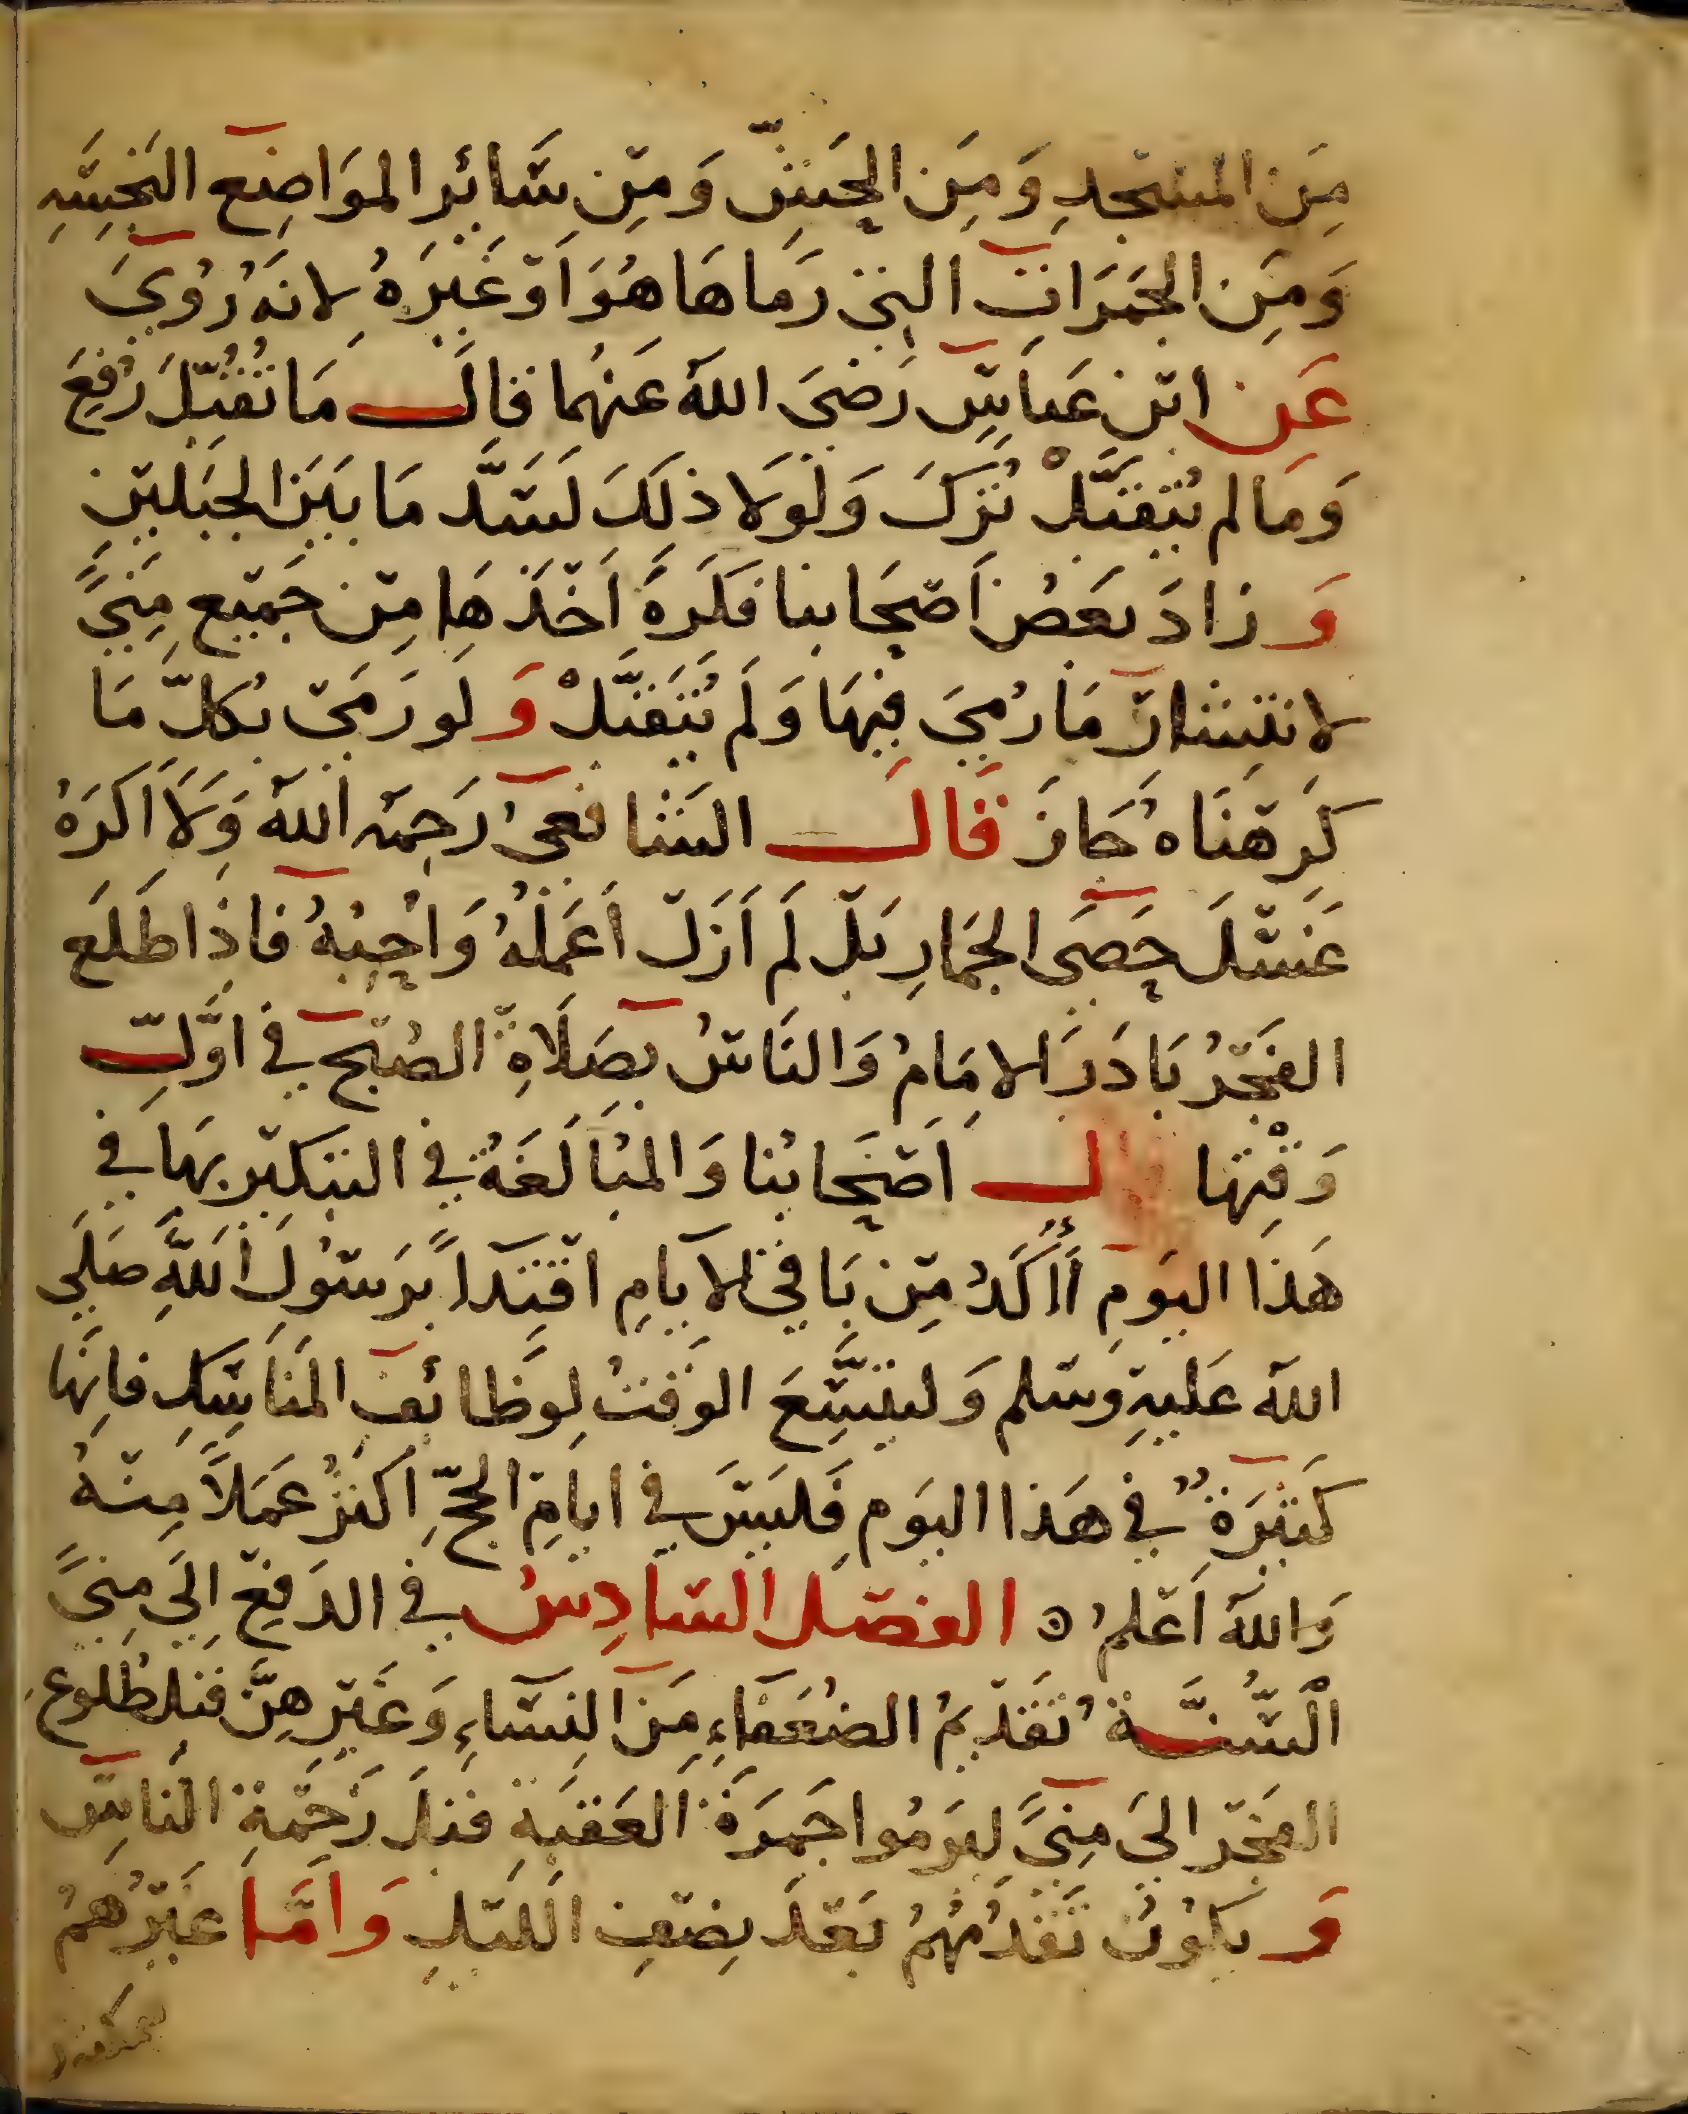 مِنَ المسْجدِ وَمِنَ الحَشِّ وَمِنْ سَائرِ المَوَاضِعِ النَجِسَةِ
وَمِنَ الجَمَرَاتِ التي رَمَاهَا هُوَ اَوْ غَيرَهُ لانهُ رُوِيَ
عَن ابْنِ عَباسٍ رَضيَ اللهُ عَنهُما قالَ مَا تُقُبِّلَ رُفِعَ
وَمَا لم يُتَقَبَّلْ تُرِكَ وَلَولَا ذلِكَ لَسَدَّ مَا بَيَنَ الجَبَليْنِ
وَ زادَ بَعضُ اَصْحَابنا فكَرَهَ اَخْذَهَا مِنْ جَمِيْعِ مِنىً
لانتِشارِ مَا رُمِيَ فِيهَا وَلَم يُتَقَبَّلْ وَ لَو رَمَىْ بكلِّ مَا
كَرِهْنَاهُ جَازَ قَالَ الشافعىُ رَحِمَهُ اللهُ وَلَا اَكرَهُ
غَسْلَ حَصَى الجمَارِ بَلْ لَم اَزَلْ اَعمَلُهُ وَاُحِبُهُ فاذَا طَلَعَ
الفَجْرُ بَادَرَ الامَامُ وَالنَاسُ بصَلَاةِ الصُبْحِ في اوَّلِ
وَقْتِهَا قال اَصْحَابُنا وَالمُبَالَغَةُ في التبكيْرِ بهَا في
هَذا اليَومِ اأكَدُ مِنْ بَاقي الايامِ اقْتِدَآءً برَسْولِ اللهِ صَلَى
اللهُ عَليهِ وَسْلم وَليتَّسِعَ الوَقتُ لِوَظائفِ المَنَاسِكِ فانهَا
كَثيرَةٌ في هَذا اليَومِ فَليسَ في ايامِ الحَجِّ اَكثرُ عَمَلاً مِنْهُ
وَاللهُ اَعْلمُ ٥ الفصْل السَادِسُ في الدَفْعِ اِلىَ مِنىً
الْسُّنَّة تَقْديْمُ الضُعَفآءِ مِنَ النِسَاءِ وَغَيْرِهِنَّ قَبْل طُلوعِ
الفَجْرِ الىَ مِنىً ليَرمُوا جَمرَةَ العَقبَةِ قبلَ زَحْمَةِ النَاسِ
وَ يَكونُ تَقَدُمُهُمْ بَعْدَ نِصْفِ اللَيْلِ وَاَمَّا غَيْرُهُمْ